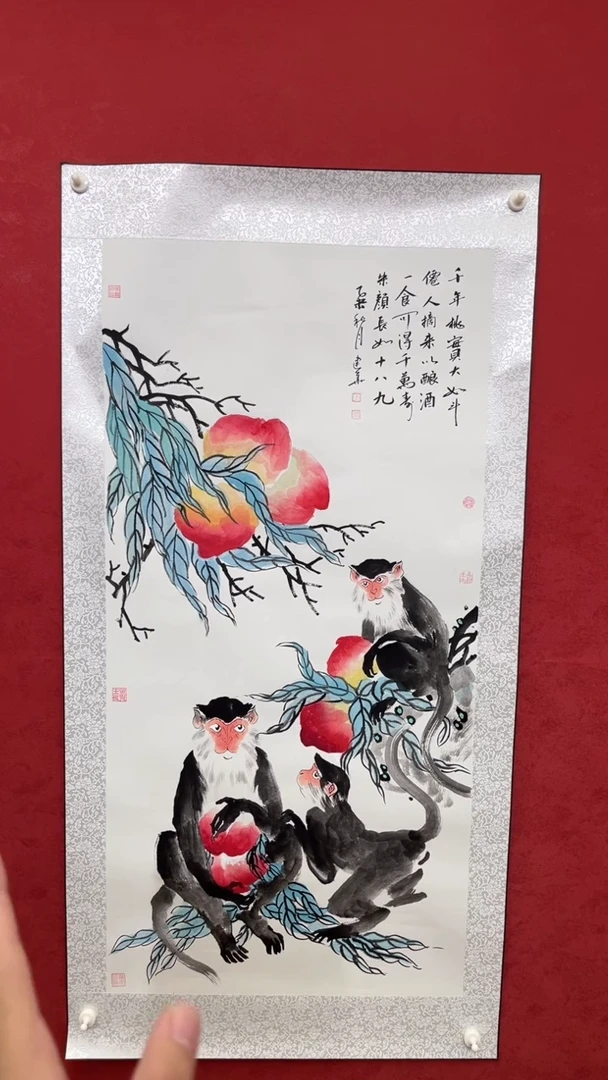 千年桃實大如斗
僊人摘來以釀酒
一食可得千萬壽
朱顏長如十八九
秋月建華